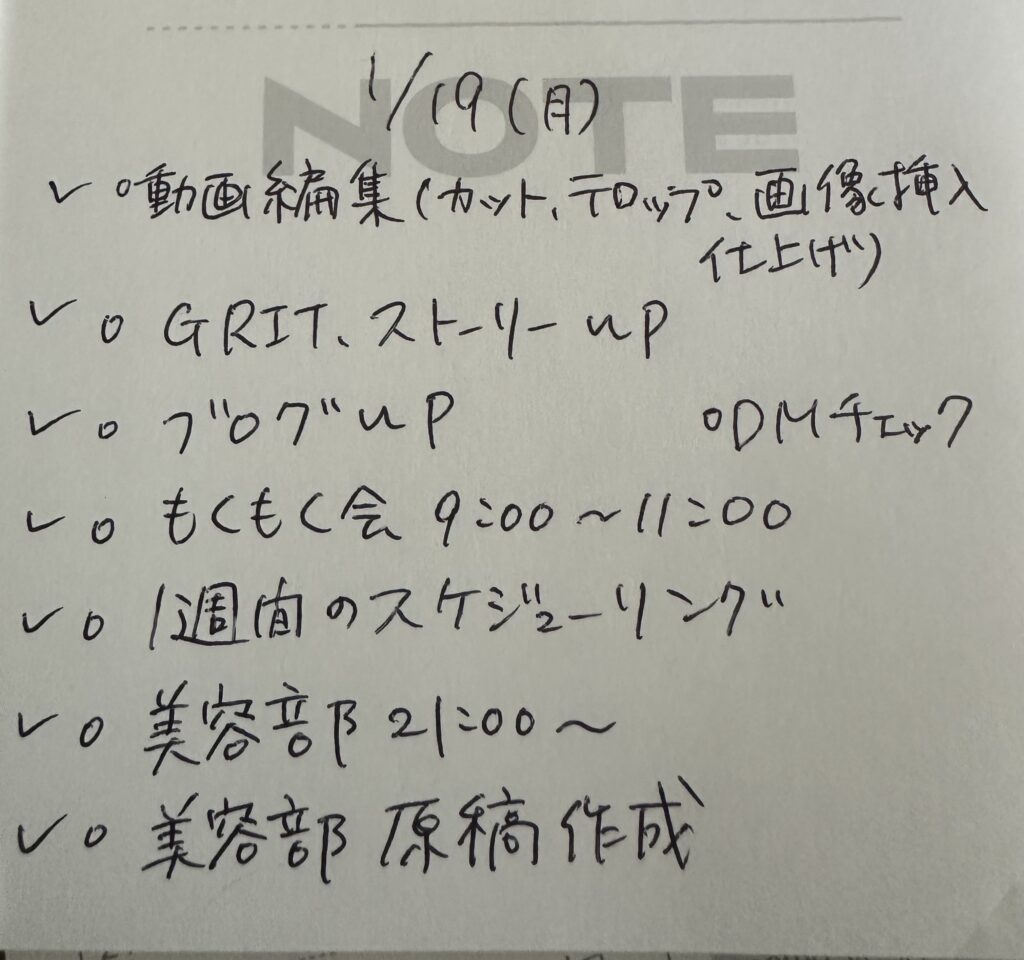 NOTE
1/19(月)
✓ ○動画編集(カット、テロップ、画像挿入
仕上げ)
✓ ○ GRIT、ストーリーup
✓ ○ ブログup ○DMチェック
✓ ○ もくもく会 9:00~11:00
✓ ○ 1週間のスケジューリング
✓ ○ 美容部 21:00~
✓ ○ 美容部 原稿作成